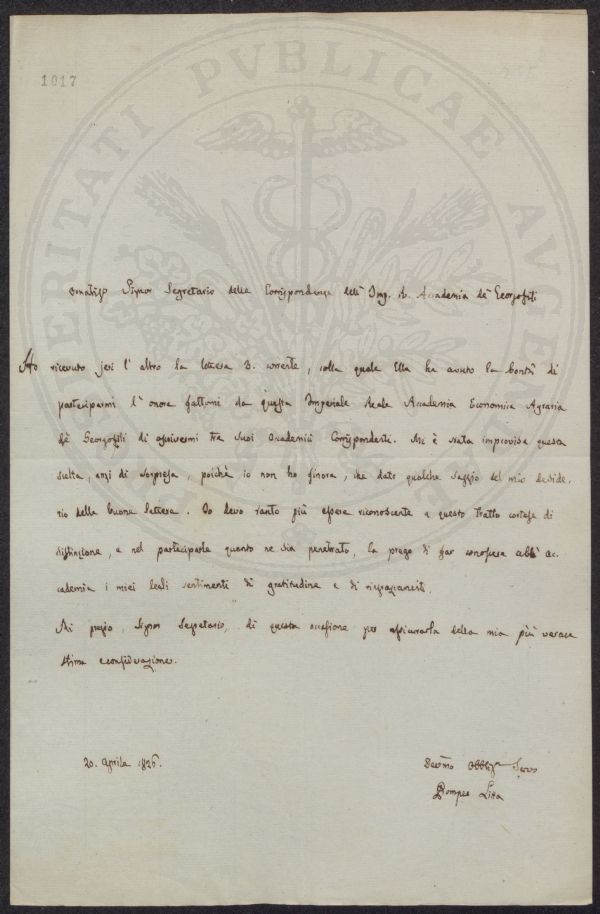 1017
PROSPERITATI PVBLICAE AVGENDAE
Ornatis.o Signor Segretario della Corrispondenza dell' Imp. R. Accademia de' Georgofili
Ho ricevuto jeri l'altro la lettera 3. corrente, colla quale Ella ha avuto la bontà di
parteciparmi l'onore fattomi da questa Imperiale Reale Accademia Economica Agraria
de' Georgofili di ascrivermi tra suoi Accademici Corrispondenti. Mi è stata improvisa questa
scelta, anzi di sorpresa, poichè io non ho finora, che dato qualche saggio del mio deside-
rio della buona lettera. Io devo tanto più essere riconoscente a questo tratto cortese di
distinzione, e nel parteciparle quanto ne sia penetrato, la prego di far conoscere all' Ac-
cademia i miei leali sentimenti di gratitudine e di ringraziamenti.
Mi pregio, Signor Segretario, di questa occasione per assicurarla della mia più verace
stima e considerazione.
20. Aprile 1826.
Devmo Obblig.o Servo
Pompeo Litta